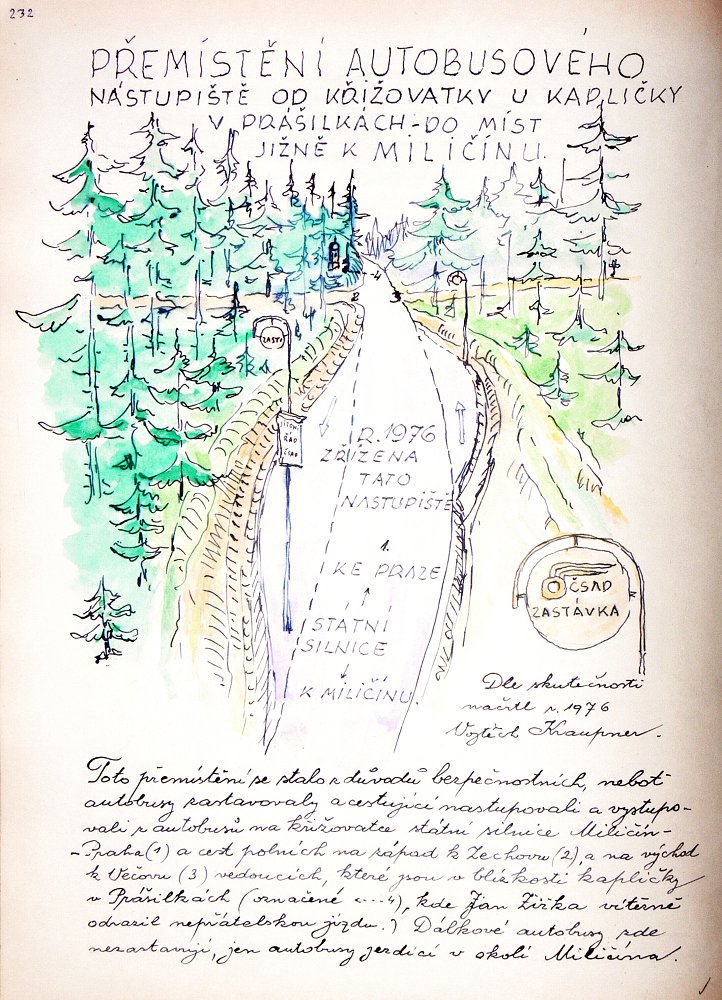 232
PŘEMÍSTĚNÍ AUTOBUSOVÉHO
NÁSTUPIŠTĚ OD KŘIŽOVATKY U KAPLIČKY
V PRÁŠILKÁCH - DO MÍST
JIŽNĚ K MILIČÍNU.
4
2 3
ZAST.
JÍZDNÍ
ŘÁD
ČSAD
R. 1976
ZŘÍZENA
TATO
NÁSTUPIŠTĚ
1.
KE PRAZE
STÁTNÍ
SILNICE
K MILIČÍNU.
ČSAD
ZASTÁVKA
Dle skutečnosti
načrtl r. 1976
Vojtěch Kraupner.
Toto přemístění se stalo z důvodů bezpečnostních, neboť
autobusy zastavovaly a cestující nastupovali a vystupo-
vali z autobusů na křižovatce státní silnice Miličín-
-Praha (1) a cest polních na západ k Zechovu (2), a na východ
k Večovu (3) vedoucích, které jsou v blízkosti kapličky
v Prášilkách (označené <---4), kde Jan Žižka vítězně
odrazil nepřátelskou jízdu.) Dálkové autobusy zde
nezastavují, jen autobusy jezdící v okolí Miličína.